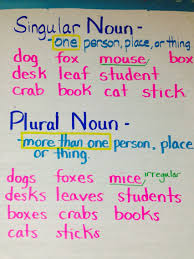 Singular Noun -
- one person, place, or thing
dog fox mouse box
desk leaf student
crab book cat stick
Plural Noun -
- more than one person, place
or thing.
dogs foxes mice irregular
desks leaves students
boxes crabs books
cats sticks